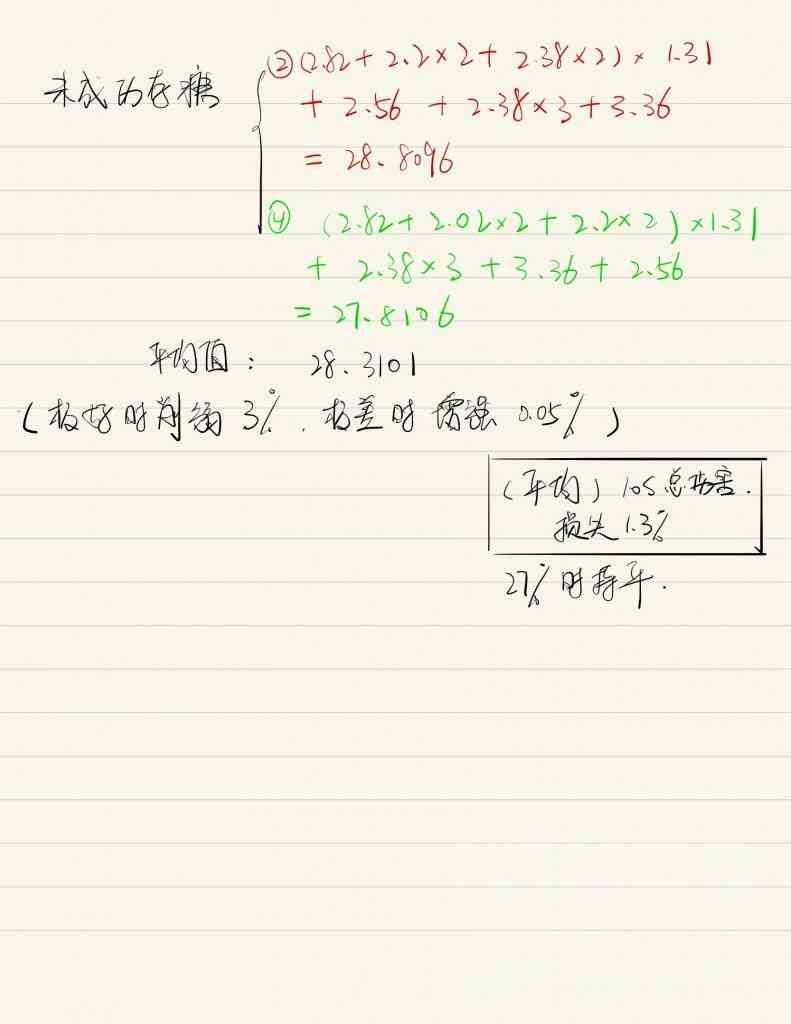 未成功存糖
②(2.82+2.2×2+2.38×2)×1.31
+2.56+2.38×3+3.36
=28.8096
④(2.82+2.02×2+2.2×2)×1.31
+2.38×3+3.36+2.56
=27.8106
平均值：28.3101
(极好时削弱3%.极差时增强0.05%)
(平均)10s总伤害.
损失1.3%
27%时持平.